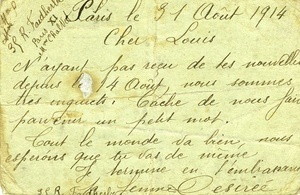 Paris le 31 Août 1914
35 R. Faidherbe
Paris XI
Cher Louis
N'ayant pas reçu de tes nouvelles
depuis le 4 Août, nous sommes
très inquiets. Tâche de nous faire
parvenir un petit mot.
Tout le monde va bien, nous
esperons que tu vas de même.
Je termine en t'embrassant
35 R. Faidherbe